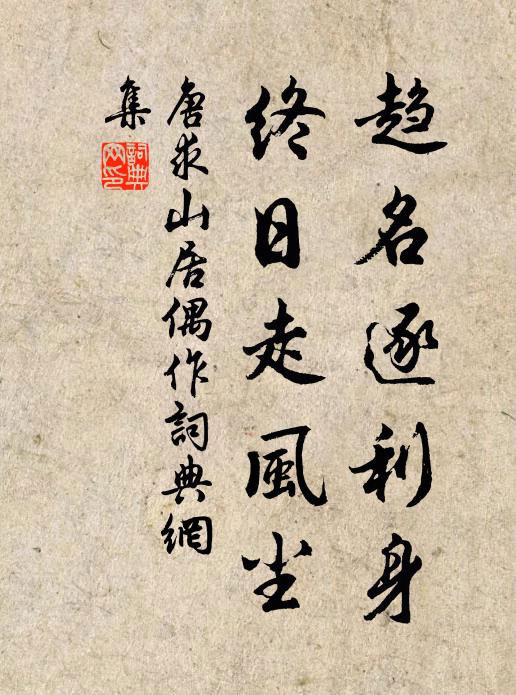 趋名逐利身
終日走風尘
唐求山居偶作詞典網
集
詞典網印